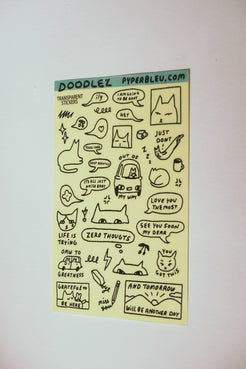 DOODLEZ PYPERBLEU.COM
TRANSPARENT
STICKERS
ily
I AM GOING
TO BE OKAY
HEY
JUST
DONT
OUT OF
MY WAY
ITS ALL JUST
LOVE YOU
THE MOST
LIFE IS
TRYING
ZERO THOUGTS
SEE YOU SOON
MY DEAR
OMW TO
GREATNESS
GOT THIS
GRATEFUL TO
BE HERE!
miss
you
AND TOMORROW
WILL BE ANOTHER DAY